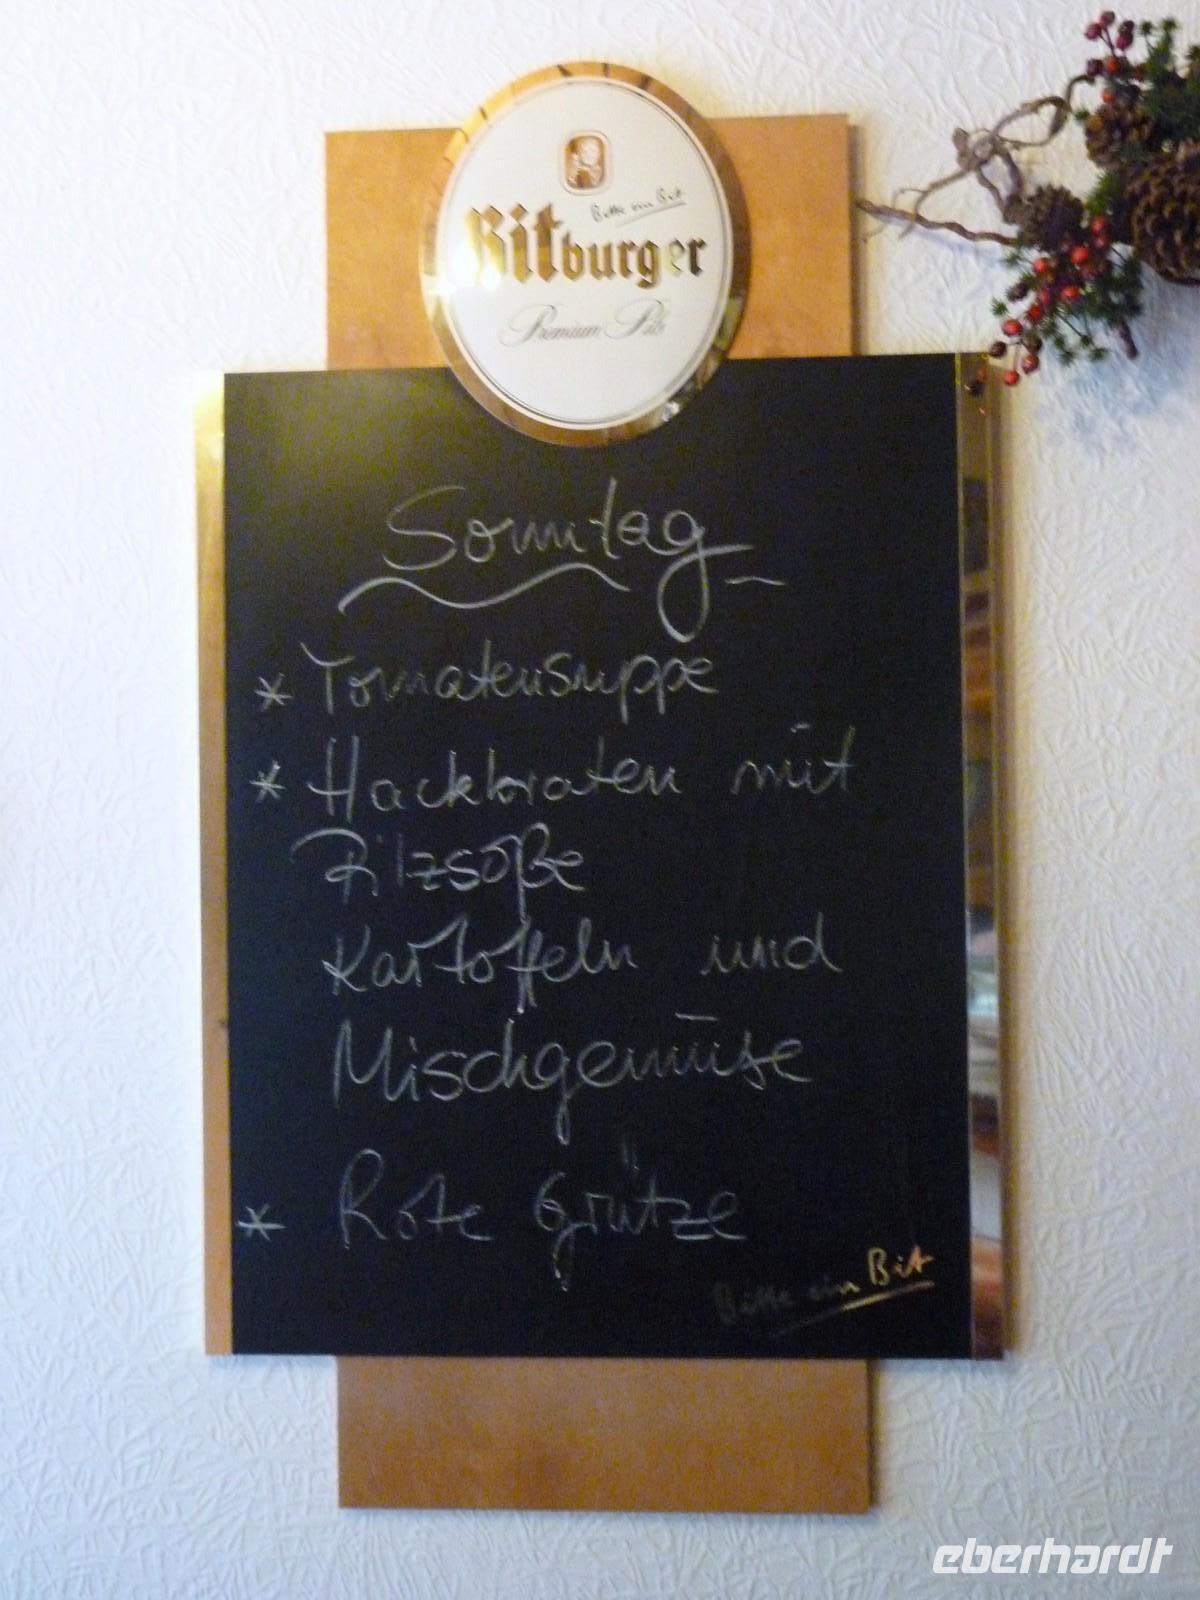 Bitte ein Bit
Bitburger
Premium Pils
Sonntag
* Tomatensuppe
* Hackbraten mit
Pilzsoße
Kartoffeln und
Mischgemüse
* Rote Grütze
Bitte ein Bit
eberhardt